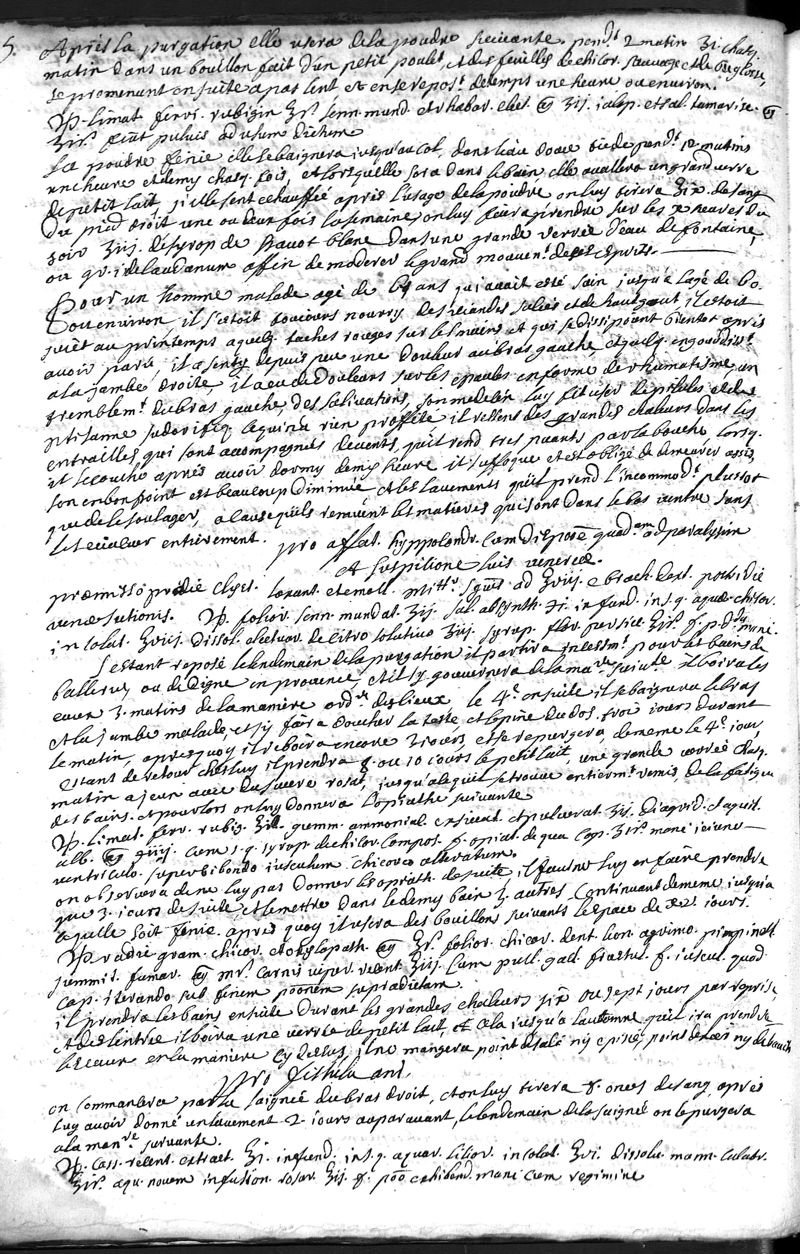 Apres la purgation elle usera de la poudre suivante. pend.t 2 matin ʒi chaq.
matin dans un bouillon fait d'un petit poulet et des feuilles de chicor. sauvage et de buglosse,
se promenant ensuite a pas lent et en se repos.t de temps une heure ou environ.
℞. limat. ferri. rubigin ℥ß. senn. mund. et rhabar. elect. ʒij. ialap. et sal. tamarisc.
ʒiß. fiat pulvis ad usum dictum
La poudre fenie elle se baignera jusqu'au col, dans l'eau douce tiede pend.t 12 matins
une heure et demy chaq. fois, et lorsquelle sera dans le bain elle avallera un grand verre
de petit lait, si elle sent echauffée après l'usage de la poudre on luy tirera ℥ix de sang
du pied droit une ou deux fois la semaine, on luy faira prendre sur les x heures du
soir ʒiij. de syrop de pavot blanc dans une grande verrée d'eau de fontaine,
ou gr. i de laudanum affin de moderer le grand mouvem.t de ses esprits.
Pour un homme malade agé de 64 ans qui avait esté sain jusqu'a lagé de 60.
ou environ, il s'estoit tousiours nourry des viandes salées et de haut gout, il estoit
sujet au printemps a quelq. taches rouges sur les mains et qui se dissipoient bientot apres
avoir paru, il a senty depuis peu une douleur au bras gauche, et quelq. engourdiss.t
a la jambe droite, il a eu de douleurs sur les epaules en forme de rhumatisme, un
tremblem.t du bras gauche, des salivations, son medecin luy fit user de pilules et de
ptisanne sudorifiq. ce qui n'a rien proffité, il ressent des grandes chaleurs dans les
entrailles qui sont acompagnées de vents, quil rend tres puants par la bouche, lorsq.
il se couche après avoir dormy demy heure il suffoque et est obligé de demeurer assis,
son enbonpoint est beaucoup diminué et les lavements quil prend l'incommod.t plustot
que de le soulager, a cause quils remuent les matieres qui sont dans le bas ventre sans
les evacuer entierement. pro affect. hyppocondr. cum dispos.e quad.am ad paralysim
et suspitione luis venereæ.
præmisso pridie clyst. lavant. et emoll. mitt.r sguis ad ℥viij. e brach. dext. postridie
venæ sectionis. ℞. folior. senn. mundat. ʒiij. sal. absynth. ℈i. infund. in s. q. aquæ chicor.
in colat. ℥viij. dissol. electuar. de citro solutivo ʒiij. syrup. flor. persicæ ℥iß. f. p.o dilu. mani.
S'estant reposé le lendemain de la purgation il partira incessm.t pour les bains de
balleruc ou de digne en provence, et il s'y gouvernera de la ma.re suivante. Il boira les
eaux 3. matins de la maniere ord.re des lieux. le 4.e ensuite il se baignera le bras
et la jambe malade, et sy faira doucher la teste et lepine du dos. trois iours durant
le matin, apres quoy il reboira encore 3 iours et se repurgera de meme le 4.e iour,
estant de retour chez luy il prendra 8 ou 10 iours le petit lait une grande verrée chaq.
matin a jeun avec du sucre rosat, jusqu'a ce quil se trouve entierm.t remis, de la fatigue
des bains. et pour lors on luy donnera l'opiathe suivante
℞. limat. ferr. rubig. ℥iß. gumm. ammoniac. exsiccat. et pulverat. ʒiij. diagrid. et aquil.
alb. ʒiij. cum s. q. syrup. de chicor. compos. f. opiat. de qua cap. ʒiß. mane ieiuno
ventriculo. superbibendo iusculum chicorea alteratum.
on observera de ne luy pas donner les opiath. de suite, il faut ne luy en faire prendre
que 3. iours de suite, et le mettre dans le demy bain 3. autres, continuant de meme jusqu'a
ce quelle soit fenie. apres quoy il usera des bouillons suivants lespace de 15. iours.
℞. radic. gram. chicor. et oxylapath. ℥ß. folior. chicor. dent. leon. agrimo. pimpinell.
summit. fumar. mß. carnis viper. recent ʒiij. cum pull. gall. fractu. f. iuscul. quod
cap. iterando sub finem pō͞nem supradictam.
il prendra les bains ensuite durant les grandes chaleurs six ou sept jours par reprise,
et dés lentrée il boira une verrée de petit lait, et cela jusqu'a lautomne quil ira prendre
les eaux en la maniere cy dessus, il ne mangera point de salé ny epicé, point de noix ny de bœuf
Pro fistula ani
on commancera par la saignée du bras droit, et on luy tirera 8. onces de sang, après
luy avoir donné un lavement 2. iours auparavant, le lendemain de la saignée on le purgera
a la man.re suivante.
℞. cass. recent. extract. ℥i. infund. in s. q. aquar. litior. in colat. ℥vi. dissolu. mann. calabr.
℥iß. aqu. novem infusion. rosar. ʒij. f. poō exhibend. mani cum regimine